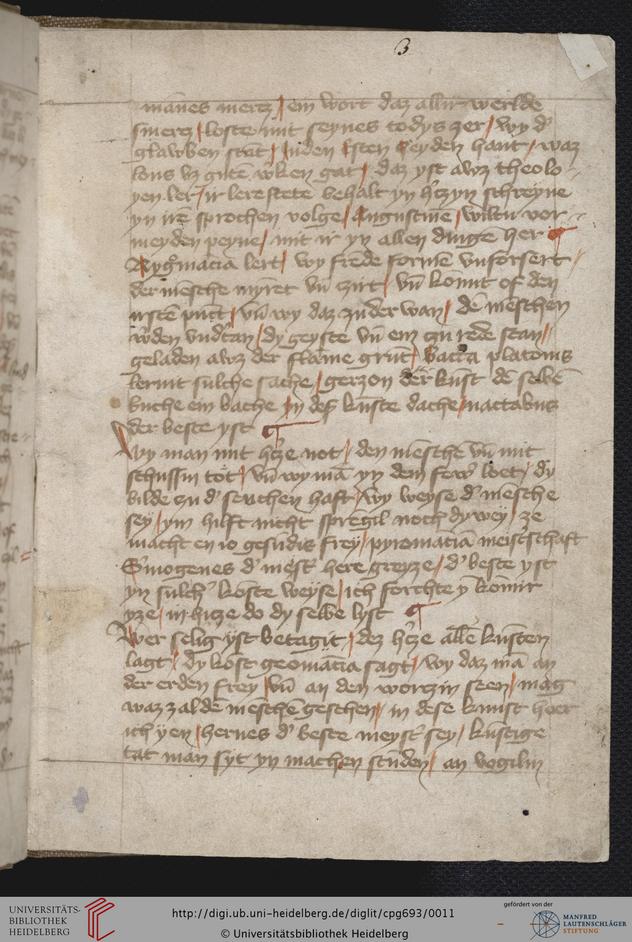 3
mānes mercz / ein wort daz allir werlde
smercz / loste mit seynes todys zer / wy d'
glawben stat / in den / heyden hant / waz
uns vz gute gat / daz yst alzo theolo-
yen ler / ir lere stete behalt yn h'czyn schreyne
yn irē sprochen volge / Augustine / wiltu vor-
meyden peyne / mit ir yn allen dingē her
lert / wy frēde formē vnforsert
der mēsche myret vn̄ czirt / vn̄ kōmit of den
punct / vn̄ wy daz zu der wan / dē mēschen
wden vnd'tan / dy geyste vn̄ em czu rede stan /
geladen alzo der flāme grut / platonis
lernit sulche sache / gerzon der kunst dē selbē
buche ein bache / in des kunste dache /
der beste yst
Wy man mit h'cze not / den mēsche vn̄ mit
schussin tot / vn̄ wy mā yn dem fewr / dy
bilde zu d' seuchen haft / wy weyse d' mēsche
sey / ym hilft nicht sprēgil noch dy wey / ze
macht en io gesūdis frey / pyromatia meistschaft
d' mēst' here / d' beste yst
yn sulch' koste weyse / ich forchte y kōmir
yze / in hicze do dy selbe lyst
Wer selig yst betagit / dez h'cze alle kūsten
lagt / dy kost geomācia sagt / wy daz mā an
der erden frey / vn̄ an den worczin seen / mag
waz zalde mēsche geschen / in dese kunst hoer
ich yen / hernes d' beste meyst' sey / kūstige
tat man syt yn machen stūden / an vogilin
UNIVERSITÄTS-
BIBLIOTHEK
HEIDELBERG
http://digi.ub.uni-heidelberg.de/diglit/cpg693/0011
© Universitätsbibliothek Heidelberg
gefördert von der
MANFRED
LAUTENSCHLÄGER
STIFTUNG